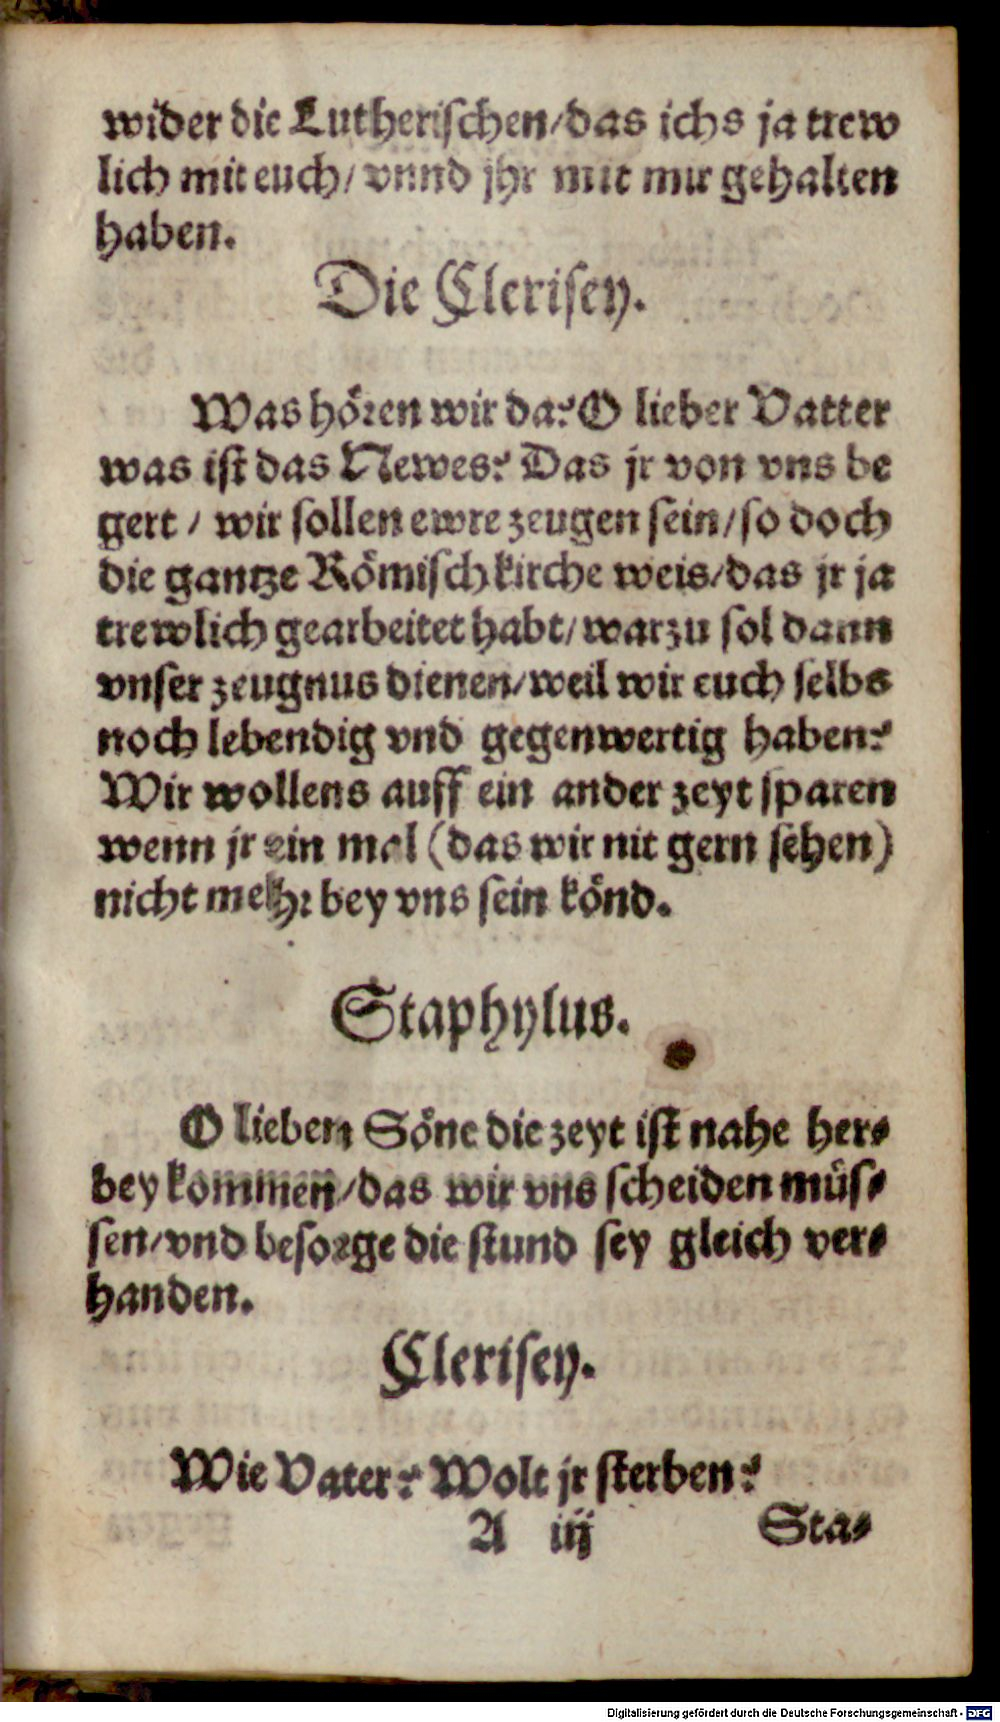 wider die Lutherischen/das ichs ja trew
lich mit euch/ vnnd jhr mit mir gehalten
haben.
Die Clerisey.
Was hören wir da? O lieber Vatter
was ist das Newes? Das jr von vns be
gert / wir sollen ewre zeugen sein/so doch
die gantze Römisch kirche weis/das jr ja
trewlich gearbeitet habt/warzu sol dann
vnser zeugnus dienen/weil wir euch selbs
noch lebendig vnd gegenwertig haben?
Wir wollens auff ein ander zeyt sparen
wenn jr ein mal (das wir nit gern sehen)
nicht mehr bey vns sein könd.
Staphylus.
O lieben Söne die zeyt ist nahe her-
bey kommen/das wir vns scheiden müs-
sen/vnd besorge die stund sey gleich ver-
handen.
Clerisey.
Wie Vater? Wolt jr sterben?
A iij Sta-
Digitalisierung gefördert durch die Deutsche Forschungsgemeinschaft - DFG